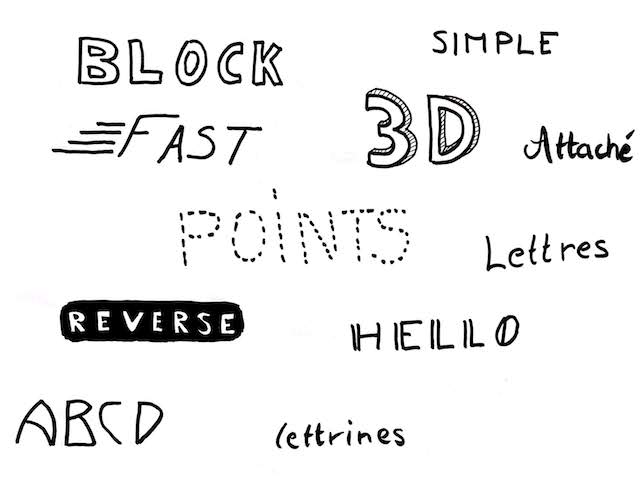 BLOCK
SIMPLE
FAST
3D
Attaché
POiNTS
Lettres
REVERSE
HELLO
ABCD
lettrines